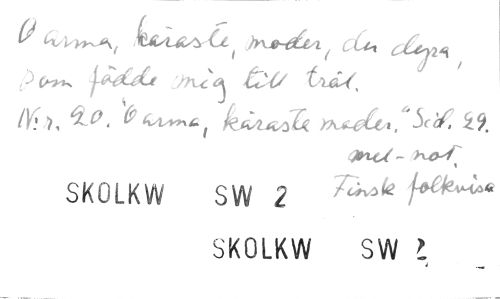 O arma, käraste, moder, du dyra,
som födde mig till träl.
N:r. 20. "O arma, käraste moder." Sid. 29.
mel-not.
SKOLKW SW 2 Finsk folkvisa
SKOLKW SW 2